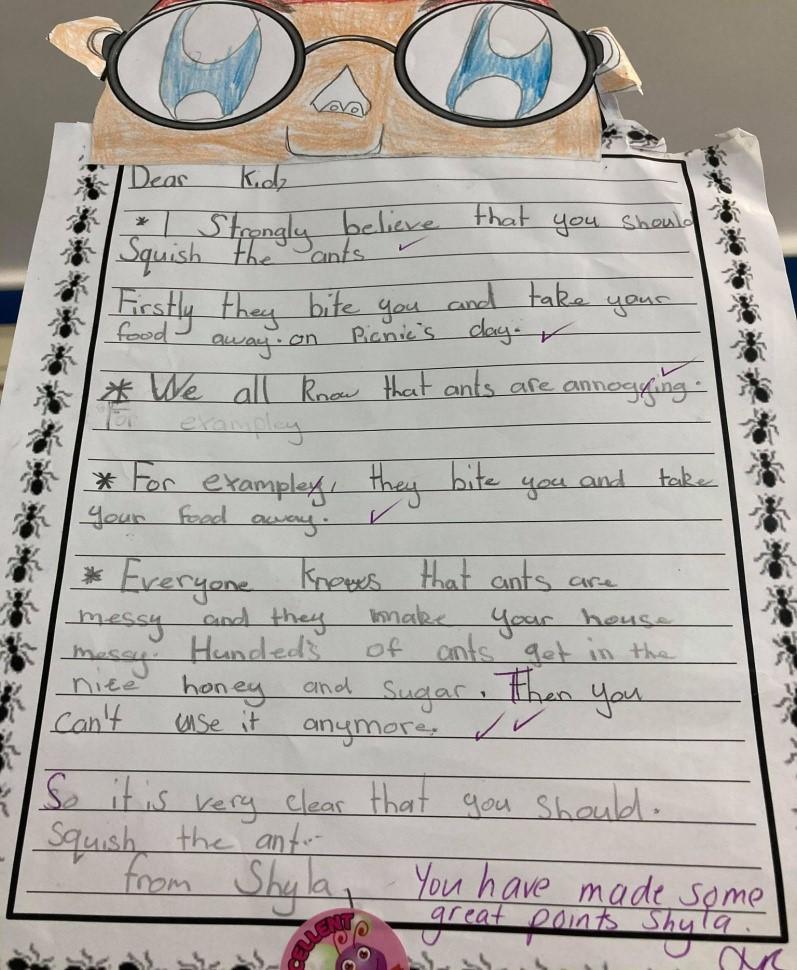 Dear Kidz
* I Strongly believe that you should
Squish the ants
Firstly they bite you and take your
food away. on Picnic's day.
* We all know that ants are annogying.
For exampley
* For exampley, they bite you and take
your food away.
* Everyone knows that ants are
messy and they make your house
messy. Hunded's of ants get in the
nice honey and sugar. Then you
can't use it anymore.
So it is very clear that you should.
Squish the ant..
from Shyla
You have made some
great points Shyla.
CELLENT